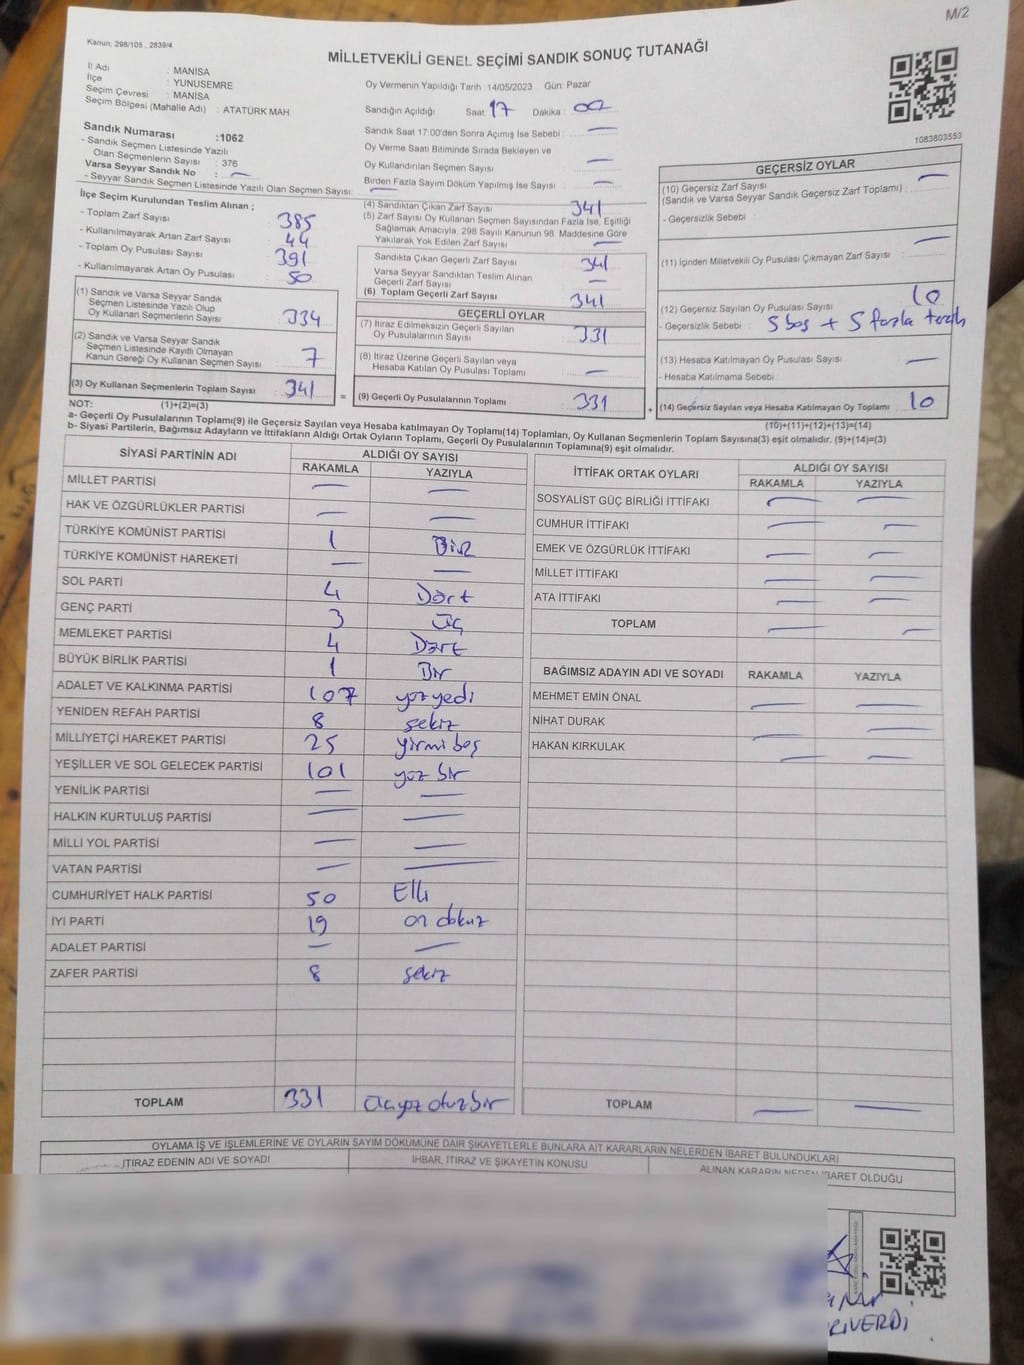 M/2
Kanun; 298/105 , 2839/4
MİLLETVEKİLİ GENEL SEÇİMİ SANDIK SONUÇ TUTANAĞI
İl Adı : MANİSA
İlçe : YUNUSEMRE
Seçim Çevresi : MANİSA
Seçim Bölgesi (Mahalle Adı) : ATATÜRK MAH
Sandık Numarası :1062
- Sandık Seçmen Listesinde Yazılı
Olan Seçmenlerin Sayısı : 376
Varsa Seyyar Sandık No : —
- Seyyar Sandık Seçmen Listesinde Yazılı Olan Seçmen Sayısı: —
Oy Vermenin Yapıldığı Tarih 14/05/2023 Gün: Pazar
Sandığın Açıldığı Saat 17 Dakika : 00
Sandık Saat 17:00'den Sonra Açımış İse Sebebi : —
Oy Verme Saati Bitiminde Sırada Bekleyen ve
Oy Kullandırılan Seçmen Sayısı —
Birden Fazla Sayım Döküm Yapılmış İse Sayısı : —
1083803553
İlçe Seçim Kurulundan Teslim Alınan ;
- Toplam Zarf Sayısı : 385
- Kullanılmayarak Artan Zarf Sayısı : 44
- Toplam Oy Pusulası Sayısı : 391
- Kullanılmayarak Artan Oy Pusulası : 50
(1) Sandık ve Varsa Seyyar Sandık
Seçmen Listesinde Yazılı Olup
Oy Kullanan Seçmenlerin Sayısı : 334
(2) Sandık ve Varsa Seyyar Sandık
Seçmen Listesinde Kayıtlı Olmayan
Kanun Gereği Oy Kullanan Seçmen Sayısı : 7
(3) Oy Kullanan Seçmenlerin Toplam Sayısı : 341
(4) Sandıktan Çıkan Zarf Sayısı 341
(5) Zarf Sayısı Oy Kullanan Seçmen Sayısından Fazla İse, Eşitliği
Sağlamak Amacıyla, 298 Sayılı Kanunun 98. Maddesine Göre
Yakılarak Yok Edilen Zarf Sayısı —
Sandıkta Çıkan Geçerli Zarf Sayısı : 341
Varsa Seyyar Sandıktan Teslim Alınan
Geçerli Zarf Sayısı : —
(6) Toplam Geçerli Zarf Sayısı : 341
GEÇERLİ OYLAR
(7) İtiraz Edilmeksizin Geçerli Sayılan
Oy Pusulalarının Sayısı : 331
(8) İtiraz Üzerine Geçerli Sayılan veya
Hesaba Katılan Oy Pusulası Toplamı : —
= (9) Geçerli Oy Pusulalarının Toplamı : 331
GEÇERSİZ OYLAR
(10) Geçersiz Zarf Sayısı
(Sandık ve Varsa Seyyar Sandık Geçersiz Zarf Toplamı) : —
- Geçersizlik Sebebi :
(11) İçinden Milletvekili Oy Pusulası Çıkmayan Zarf Sayısı : —
(12) Geçersiz Sayılan Oy Pusulası Sayısı : 10
- Geçersizlik Sebebi : 5 boş + 5 fazla tercih
(13) Hesaba Katılmayan Oy Pusulası Sayısı : —
- Hesaba Katılmama Sebebi :
+ (14) Geçersiz Sayılan veya Hesaba Katılmayan Oy Pusulası Toplamı : 10
NOT: (1)+(2)=(3)
(10)+(11)+(12)+(13)=(14)
a- Geçerli Oy Pusulalarının Toplamı(9) ile Geçersiz Sayılan veya Hesaba katılmayan Oy Pusulası Toplamı(14) Toplamları, Oy Kullanan Seçmenlerin Toplam Sayısına(3) eşit olmalıdır. (9)+(14)=(3)
b- Siyasi Partilerin, Bağımsız Adayların ve İttifakların Aldığı Ortak Oyların Toplamı, Geçerli Oy Pusulalarının Toplamına(9) eşit olmalıdır.
SİYASİ PARTİNİN ADI ALDIĞI OY SAYISI
RAKAMLA YAZIYLA
MİLLET PARTİSİ — —
HAK VE ÖZGÜRLÜKLER PARTİSİ — —
TÜRKİYE KOMÜNİST PARTİSİ 1 Bir
TÜRKİYE KOMÜNİST HAREKETİ — —
SOL PARTİ 4 Dört
GENÇ PARTİ 3 Üç
MEMLEKET PARTİSİ 4 Dört
BÜYÜK BİRLİK PARTİSİ 1 Bir
ADALET VE KALKINMA PARTİSİ 107 yüz yedi
YENİDEN REFAH PARTİSİ 8 sekiz
MİLLİYETÇİ HAREKET PARTİSİ 25 yirmi beş
YEŞİLLER VE SOL GELECEK PARTİSİ 101 yüz bir
YENİLİK PARTİSİ — —
HALKIN KURTULUŞ PARTİSİ — —
MİLLİ YOL PARTİSİ — —
VATAN PARTİSİ — —
CUMHURİYET HALK PARTİSİ 50 Elli
İYİ PARTİ 19 on dokuz
ADALET PARTİSİ — —
ZAFER PARTİSİ 8 sekiz
TOPLAM 331 üçyüz otuz bir
İTTİFAK ORTAK OYLARI ALDIĞI OY SAYISI
RAKAMLA YAZIYLA
SOSYALİST GÜÇ BİRLİĞİ İTTİFAKI — —
CUMHUR İTTİFAKI — —
EMEK VE ÖZGÜRLÜK İTTİFAKI — —
MİLLET İTTİFAKI — —
ATA İTTİFAKI — —
TOPLAM — —
BAĞIMSIZ ADAYIN ADI VE SOYADI RAKAMLA YAZIYLA
MEHMET EMİN ÖNAL — —
NİHAT DURAK — —
HAKAN KIRKULAK — —
TOPLAM — —
OYLAMA İŞ VE İŞLEMLERİNE VE OYLARIN SAYIM DÖKÜMÜNE DAİR ŞİKAYETLERLE BUNLARA AİT KARARLARIN NELERDEN İBARET BULUNDUKLARI
İTİRAZ EDENİN ADI VE SOYADI İHBAR, İTİRAZ VE ŞİKAYETİN KONUSU ALINAN KARARIN NEDEN İBARET OLDUĞU